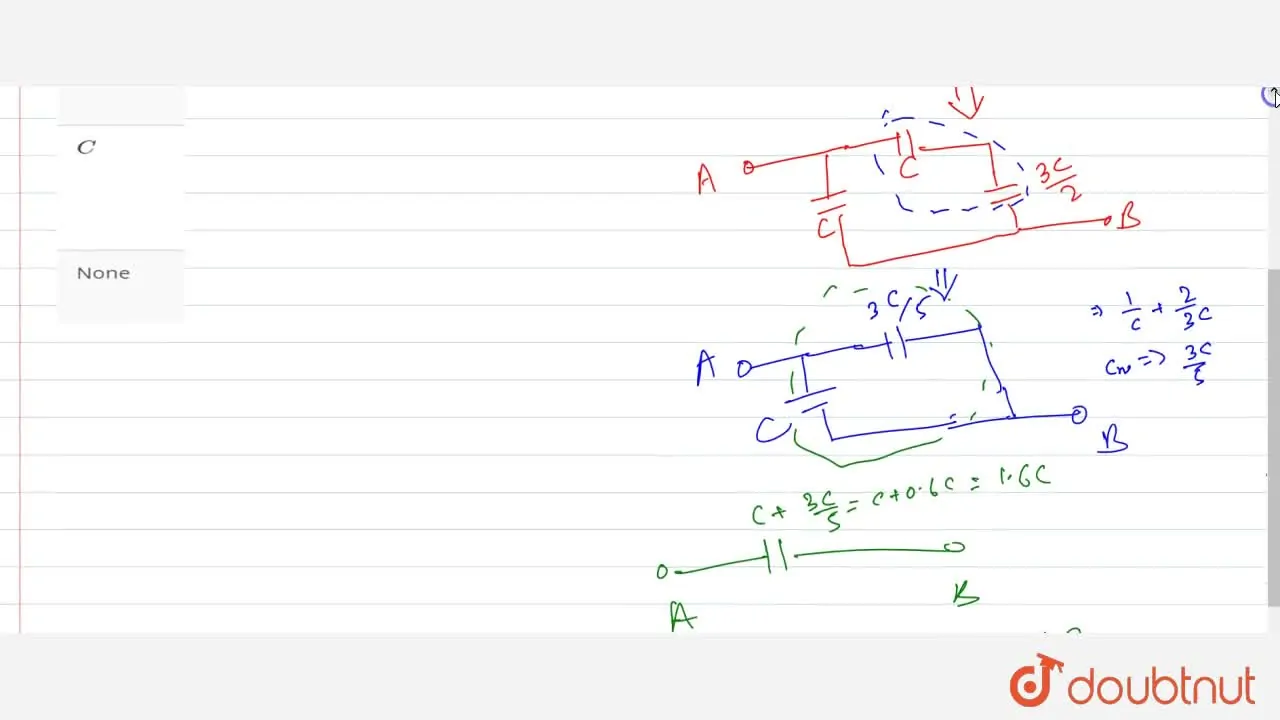 C
None
A
C
C
3C/2
B
3C/5
A
C
B
⇒ 1/C + 2/3C
⇒ 3C/5
C + 3C/5 = C+0.6C = 1.6C
A
B
doubtnut